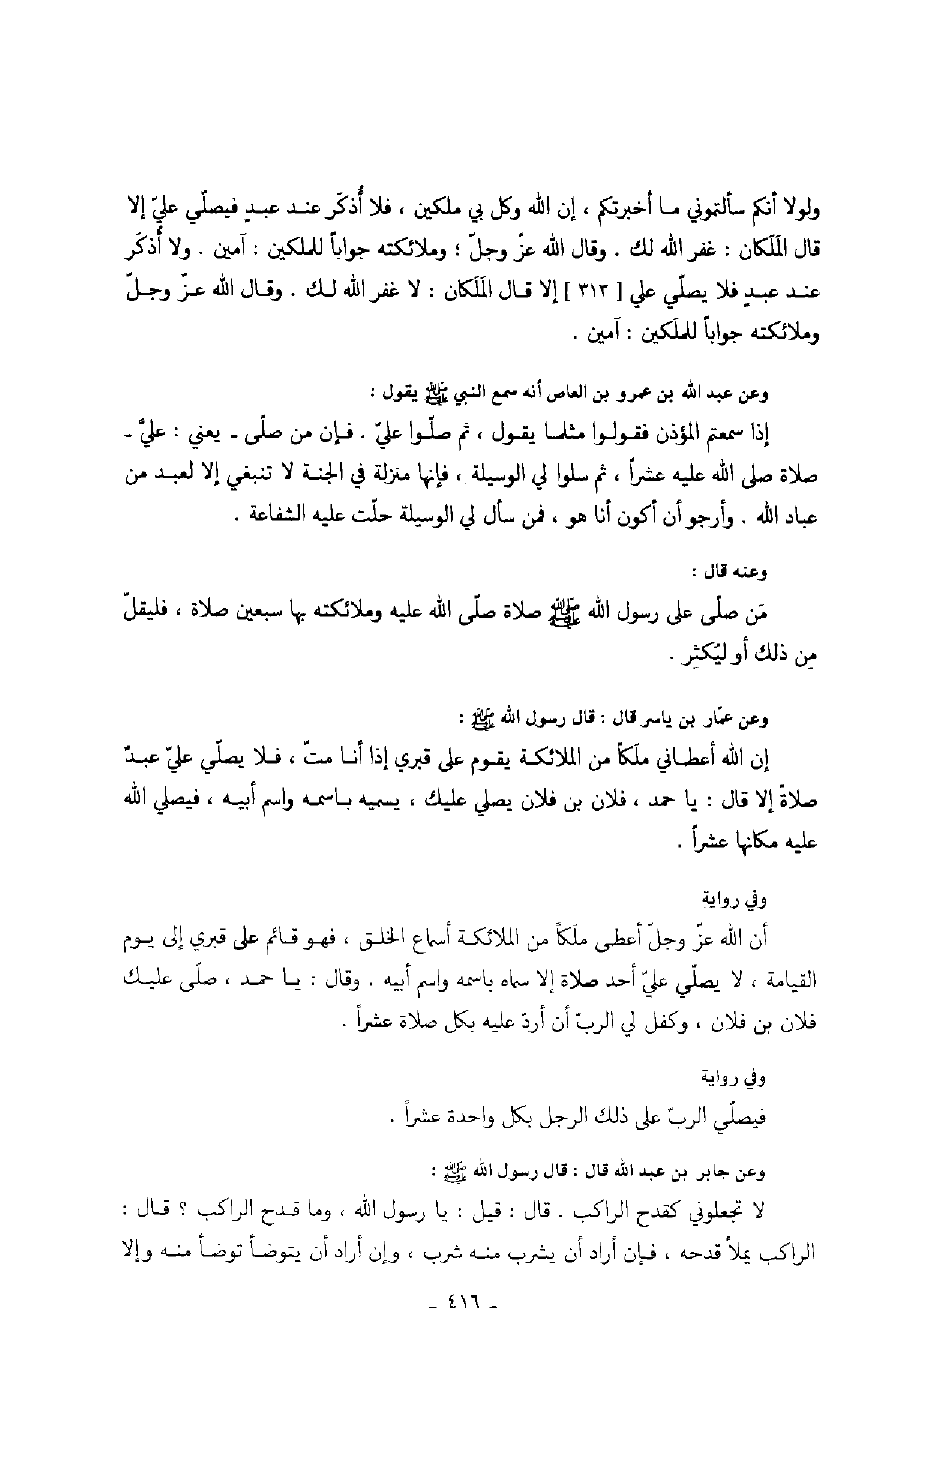 ولولا أنكم سألتموني مـا أخبرتكم ، إن الله وكل بي ملكين ، فلا أُذكَر عنـد عبـدٍ فيصلّي عليّ إلا
قال المَلَكان : غفر الله لك . وقال الله عزّ وجلّ ؛ وملائكته جواباً للملكين : آمين . ولا أُذكَر
عنـد عبـدٍ فلا يصلّي علي [ ٣١٣ ] إلا قـال المَلَكان : لا غفر الله لـك . وقـال الله عـزّ وجـلّ
وملائكته جواباً للملَكين : آمين .
وعن عبد الله بن عمرو بن العاص أنه سمع النبي ﷺ يقول :
إذا سمعتم المؤذن فقـولـوا مثلمـا يقول ، ثم صلّـوا عليّ . فـإن من صلّى ـ يعني : عليَّ ـ
صلاة صلى الله عليه عشراً ، ثم سلوا لي الوسيلة ، فإنها منزلة في الجنـة لا تنبغي إلا لعبـد من
عباد الله . وأرجو أن أكون أنا هو ، فمن سأل لي الوسيلة حلّت عليه الشفاعة .
وعنه قال :
مَن صلّى على رسول الله ﷺ صلاة صلّى الله عليه وملائكته بها سبعين صلاة ، فليقلّ
مِن ذلك أو ليُكثِر .
وعن عمّار بن ياسر قال : قال رسول الله ﷺ :
إن الله أعطـاني ملَكاً من الملائكـة يقـوم على قبري إذا أنـا متّ ، فـلا يصلّي عليّ عبـدٌ
صلاةً إلا قال : يا حمد ، فلان بن فلان يصلي عليك ، يسميه بـاسمه واسم أبيـه ، فيصلي الله
عليه مكانها عشراً .
وفي رواية
أن الله عزّ وجلّ أعطى ملَكاً من الملائكـة أسماع الخلـق ، فهـو قـائم على قبري إلى يـوم
القيامة ، لا يصلّي عليّ أحد صلاة إلا سماه باسمه واسم أبيه . وقال : يـا حمـد ، صلّى عليـك
فلان بن فلان ، وكفل لي الربّ أن أردّ عليه بكل صلاة عشراً .
وفي رواية
فيصلّي الربّ على ذلك الرجل بكل واحدة عشراً .
وعن جابر بن عبد الله قال : قال رسول الله ﷺ :
لا تجعلوني كقدح الراكب . قال : قيل : يا رسول الله ، وما قـدح الراكب ؟ قـال :
الراكب يملأ قدحه ، فـإن أراد أن يشرب منـه شرب ، وإن أراد أن يتوضـأ توضـأ منـه وإلا
ـ ٤١٦ ـ